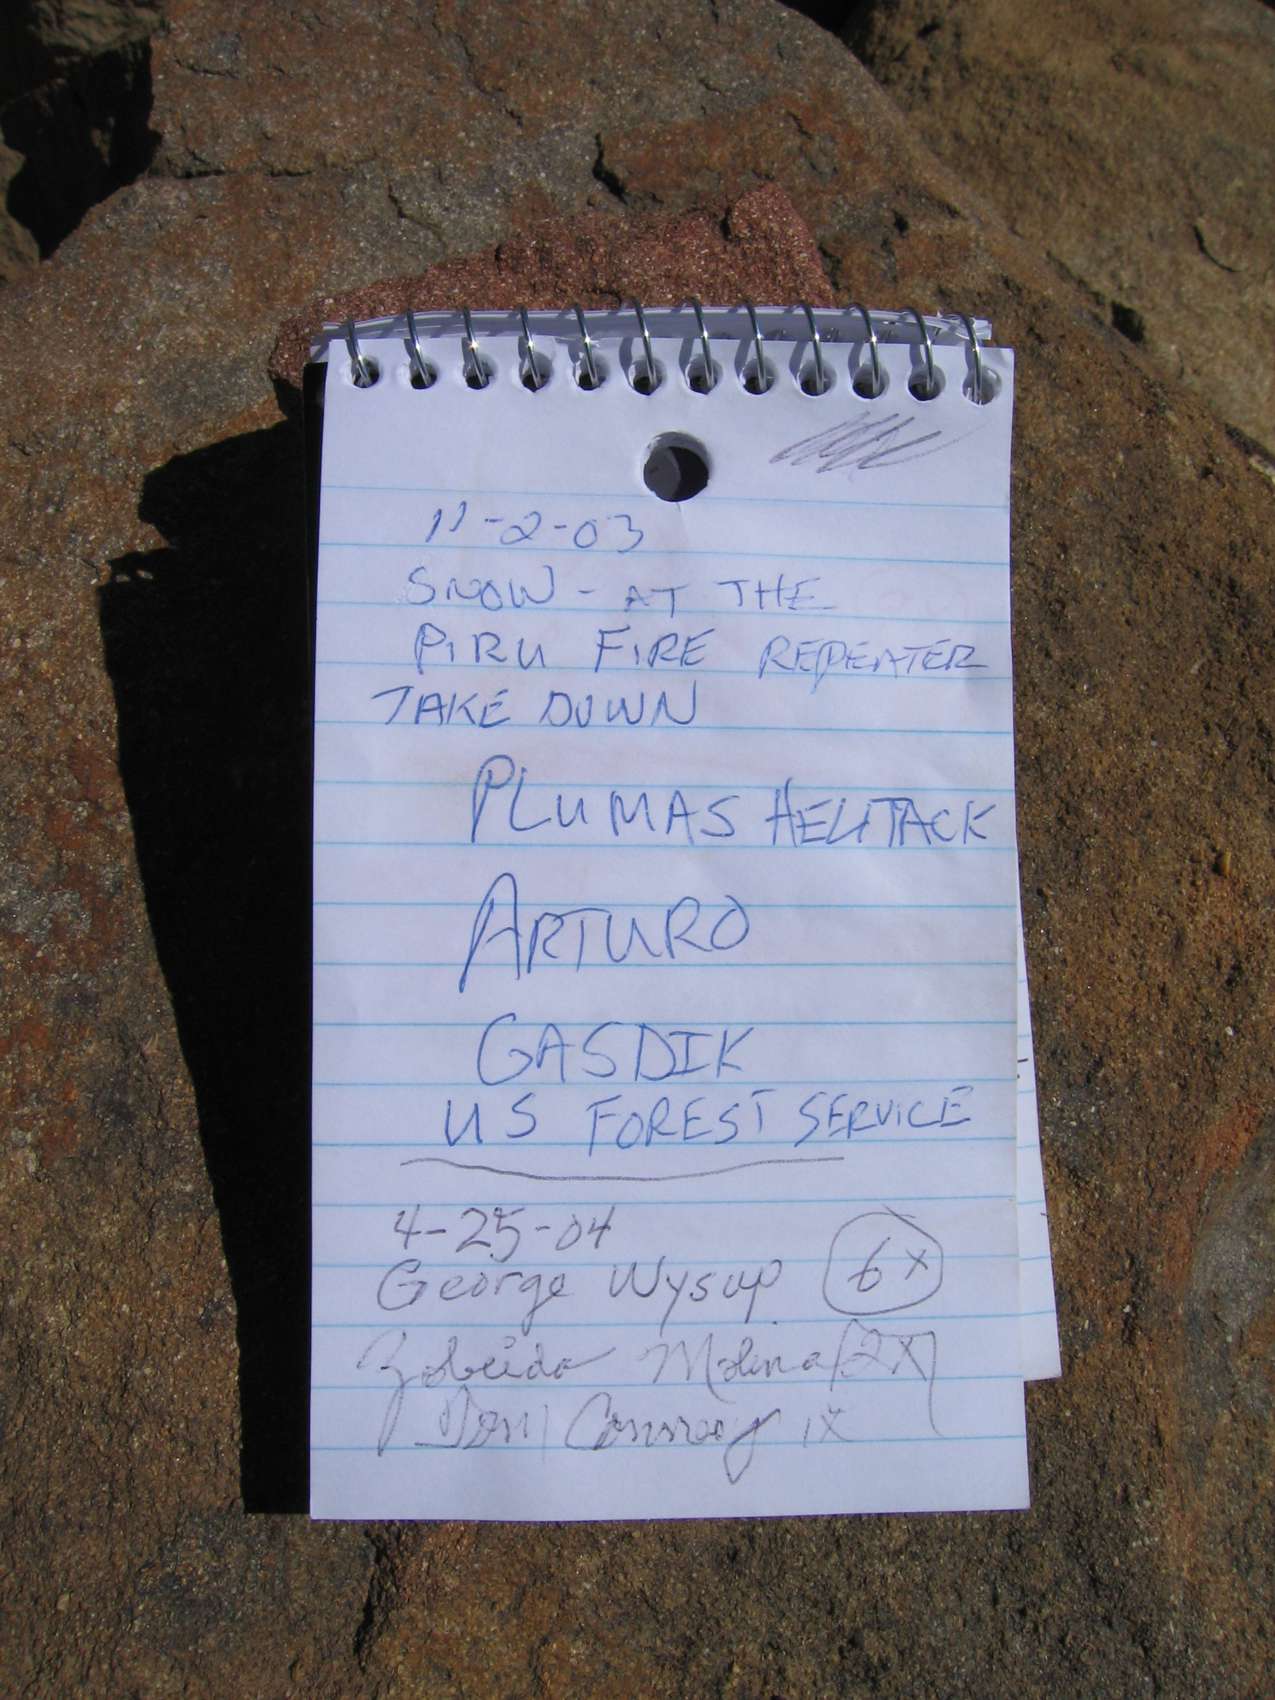 11-2-03
SNOW - AT THE
PIRU FIRE REPEATER
TAKE DOWN
PLUMAS HELITACK
ARTURO
GASDIK
US FOREST SERVICE
4-25-04
George Wysup 6x
Zobeida Molina 2x
Conway 1x